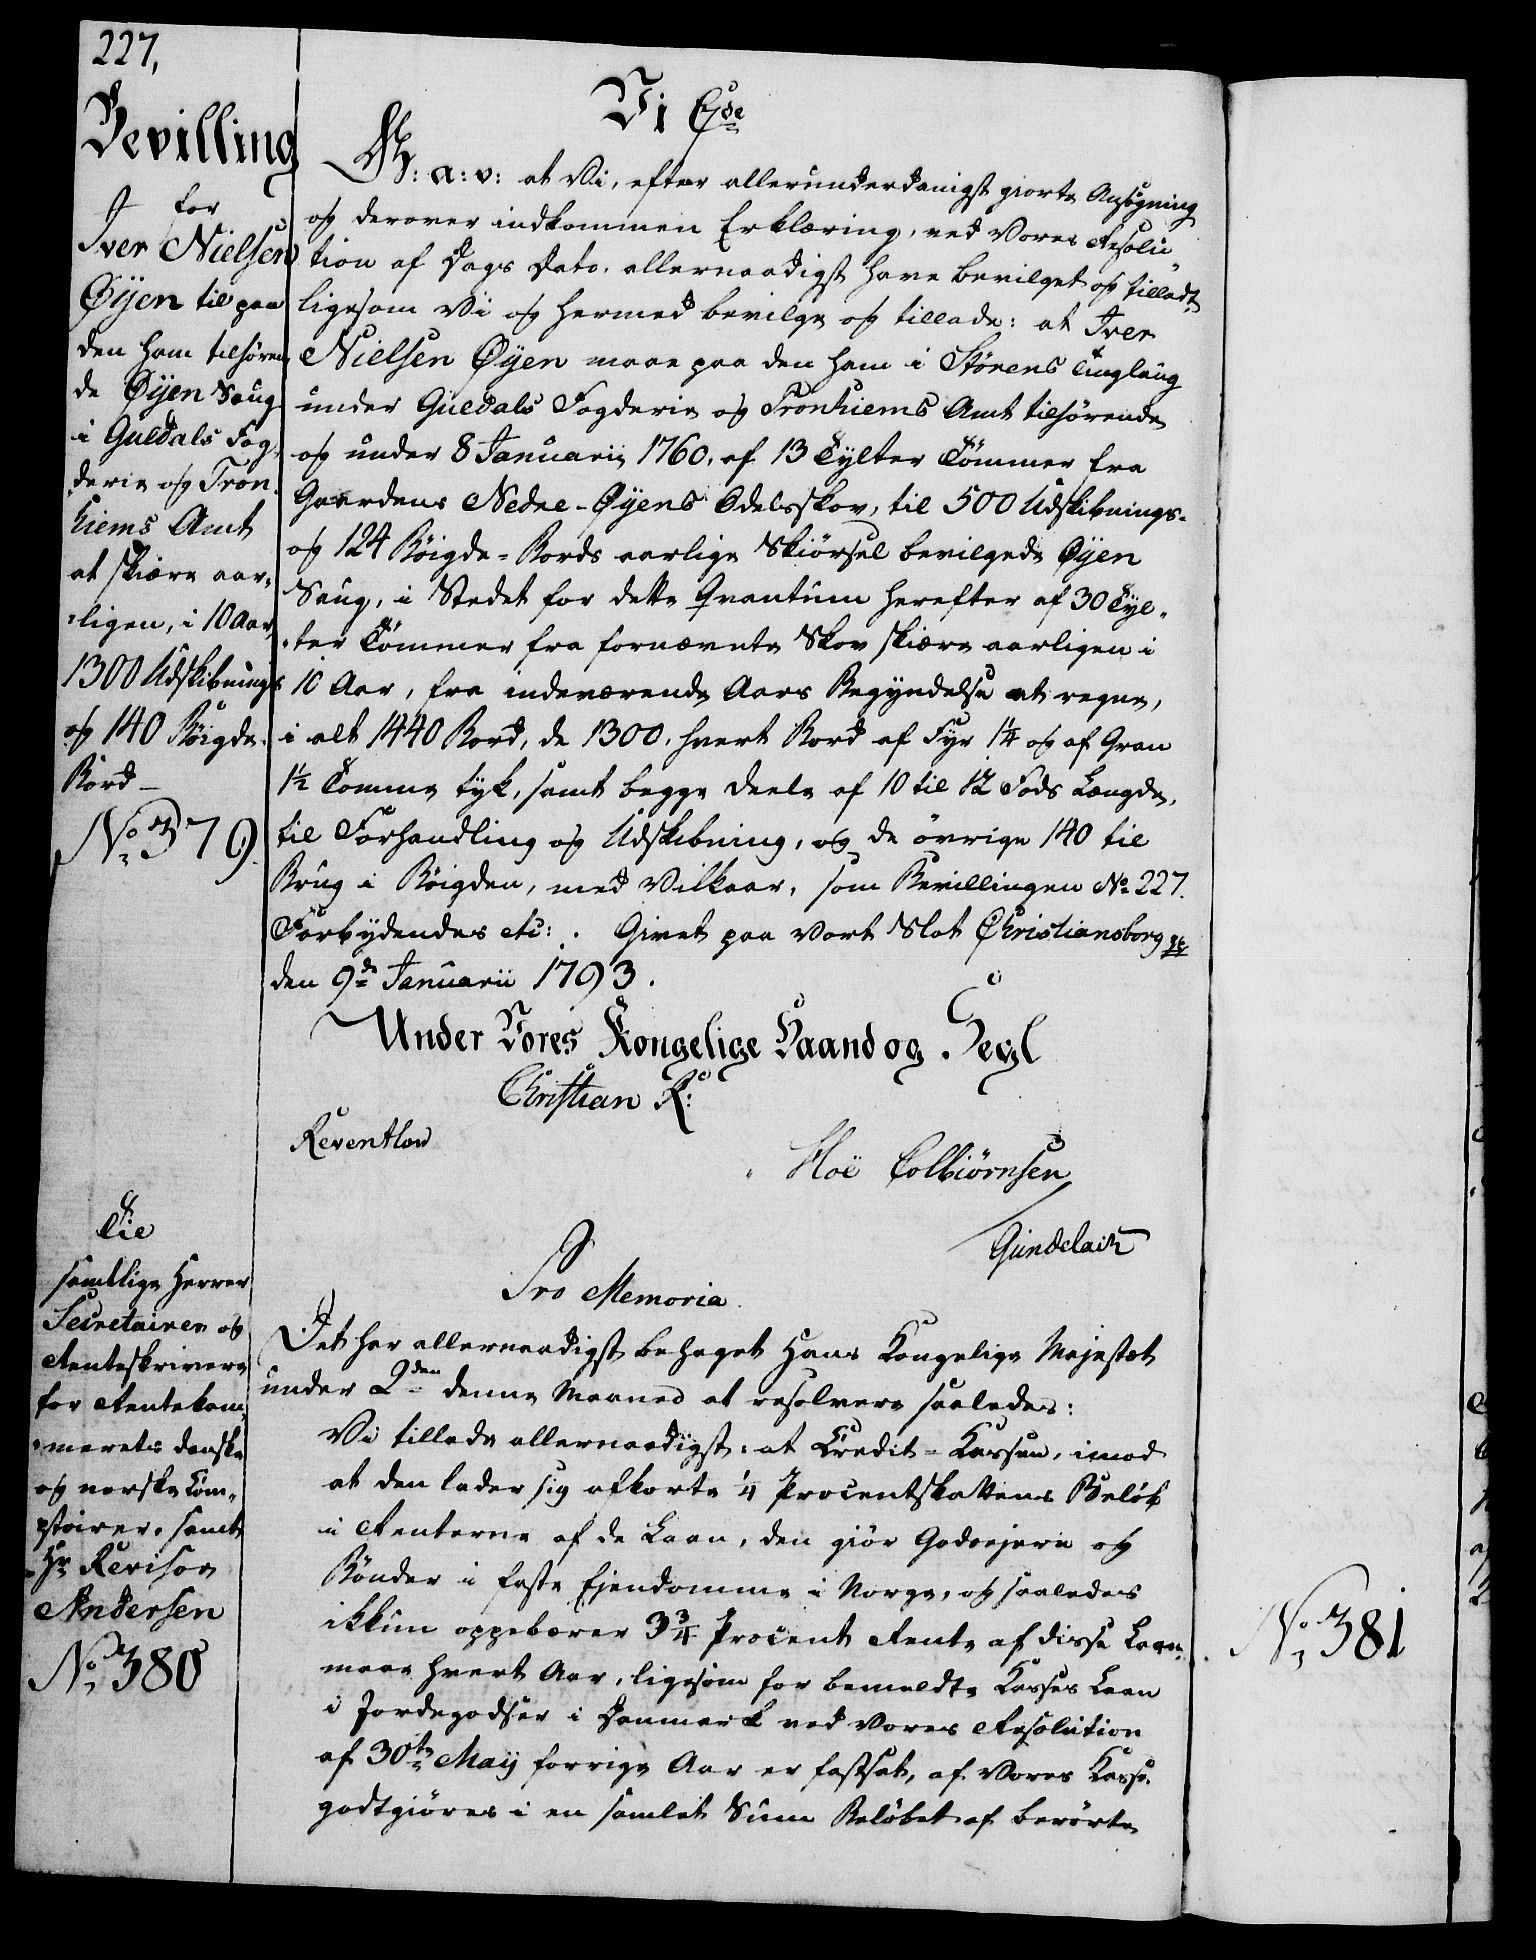 227,
Bevilling
for
Iver Nielsen
Öÿen til paa
den ham tilhören
de Öÿen Saug
i Guldals Fog,
derie og Tron
hiems Amt
at skiære aar,
ligen, i 10 Aar
1300 Udskibnings
og 140 Böigde
Bord –
No 379.
Vi C 7de
G: a: v: at Vi, efter allerunderdanigst giorte Ansögning
og derover indkommen Erklæring, ved Vores Resolu
tion af Dags Dato, allernaadigst have bevilget og tilladt,
ligesom Vi og hermed bevilge og tillade: at Iver
Nielsen Öÿen maae paa den ham i Störens Tinglaug
under Guldals Fogderie og Tronhiems Amt tilhörende
og under 8 Januarii 1760, af 13 Tylter Tömmer fra
Gaardens Nedre-Öÿens Odelsskov, til 500 Udskibnings-
og 124 Böigde-Bords aarlige Skiörsel bevilgede Öÿen
Saug, i Stedet for dette Qvantum herefter af 30 Tyl-
ter Tömmer fra fornævnte Skov skiære aarligen i
10 Aar, fra indeværende Aars Begyndelse at regne,
i alt 1440 Bord, de 1300, hvert Bord af Fyr 1¼ og af Gran
1½ Tomme tyk, samt begge Deele af 10 til 12 Fods Længde,
til Forhandling og Udskibning, og de övrige 140 til
Brug i Böigden, med Vilkaar, som Bevillingen No 227.
Forbydendes etc: . Givet paa Vort Slot Christiansborg
den 9de Januarii 1793.
Under Vores Kongelige Haand og Segl
Christian R:
Reventlow
Hoë Colbiörnsen
Gundelach
Til
samtlige Herrer
Secretairer og
Renteskrivere
for Rentekam,
merets danske
og norske Com,
ptoirer, samt
Hr Revisor
Andersen
No 380
Pro Memoria
Det har allernaadigst behaget Hans Kongelige Majestæt
under 2den denne Maaned at resolvere saaledes:
Vi tillade allernaadigst, at Credit-Kassen, imod
at den lader sig afkorte ¼ Procentskattens Belöb
i Renterne af de Laan, den giör Godseiere og
Bönder i faste Ejendomme i Norge, og saaledes
ikkun oppebærer 3¾ Procent Rente af disse Laan,
maae hvert Aar, ligesom for bemeldte Kasses Laan
i Jordegodser i Danmark ved Vores Resolution
af 30te Maij forrige Aar er fastsat, af Vores Kasse
godtgiöres i en samlet Sum Belöbet af berörte
No 381